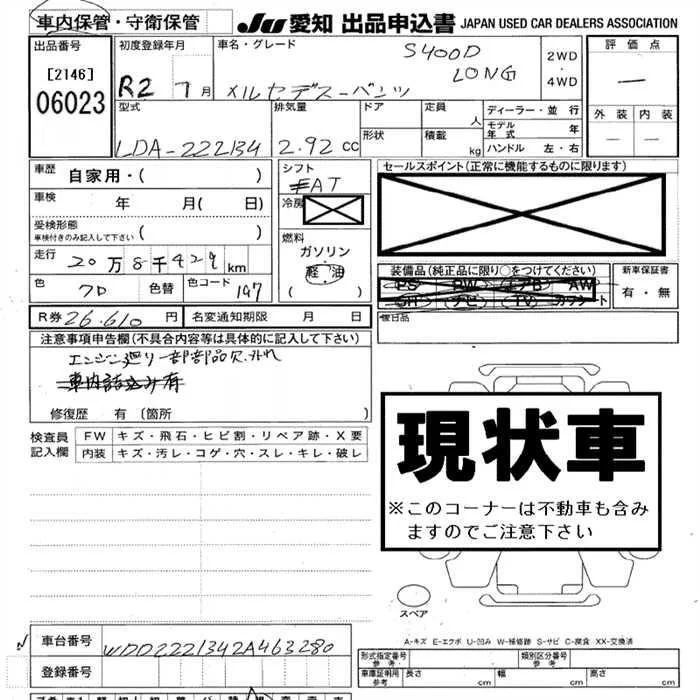 車内保管・守衛保管
JU 愛知 出品申込書 JAPAN USED CAR DEALERS ASSOCIATION
出品番号
[2146]
06023
初度登録年月
R2 7月
車名・グレード
S400D
LONG
メルセデスーベンツ
2WD
・
4WD
評価点
—
外装 内装
— —
型式
LDA-222134
排気量
2.92 cc
ドア
形状
定員 人
積載 kg
ディーラー・並行
モデル年式 年
ハンドル 左・右
車歴 自家用・( )
車検 年 月( 日)
受検形態
車検付きのみ記入して下さい ( )
走行 20万8千429km
色 色替 色コード 197
シフト
FAT
冷房
燃料
ガソリン
軽油
( )
セールスポイント(正常に機能するものに限ります)
装備品(純正品に限り○をつけてください)
PS PW エアB AW
SR ナビ TV カワシート
新車保証書
有・無
後日品
R券 26.610 円 名変通知期限 月 日
注意事項申告欄(不具合内容等は具体的に記入して下さい)
エンジン廻り一部部品欠.外れ
車内詰込み有
修復歴 有(箇所 )
検査員記入欄
FW キズ・飛石・ヒビ割・リペア跡・X要
内装 キズ・汚レ・コゲ・穴・スレ・キレ・破レ
現状車
※このコーナーは不動車も含み
ますのでご注意下さい
スペア
A-キズ E-エクボ U-凹み W-補修跡 S-サビ C-腐食 XX-交換済
車台番号 WDD2221342A463280
登録番号
形式指定番号 参考
類別区分番号 参考
車庫証明用 参考 長さ cm 幅 cm 高さ cm